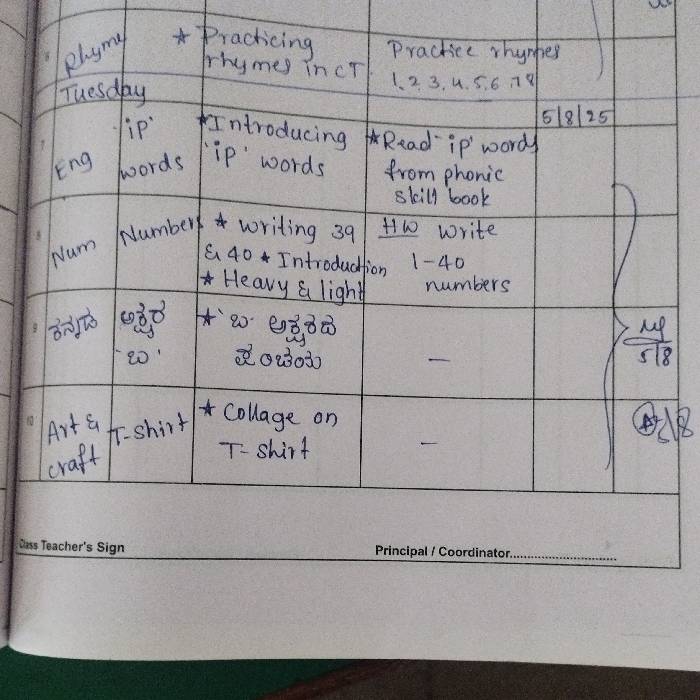 Rhyme ★ Practicing Practice rhymes
rhymes in CT 1,2,3,4,5,6,7,8
Tuesday
5/8/25
7 Eng 'ip' words ★ Introducing 'ip' words ★ Read 'ip' words
from phonic
skill book
8 Num Numbers ★ writing 39 HW write
& 40 ★ Introduction 1-40
★ Heavy & light numbers
9 ಕನ್ನಡ ಅಕ್ಷರ ★ 'ಬ' ಅಕ್ಷರದ
'ಬ' ಪರಿಚಯ —
5/8
10 Art & craft T-shirt ★ Collage on
T-shirt —
5/8
Class Teacher's Sign Principal / Coordinator..............................